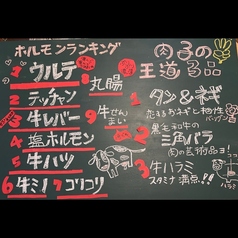 ホルモンランキング
1 ウルテ
2 テッチャン
3 牛レバー
4 塩ホルモン
5 牛ハツ
6 牛ミノ
7 コリコリ
8 丸腸
9 牛せんまい
肉子の
王道3品
1 タン&ネギ
たまるおネギと相性バツグン
2 黒毛和牛の
三角バラ
肉の芸術品ヨ!
3 牛ハラミ
スタミナ満点!!
ココ
コリコリ